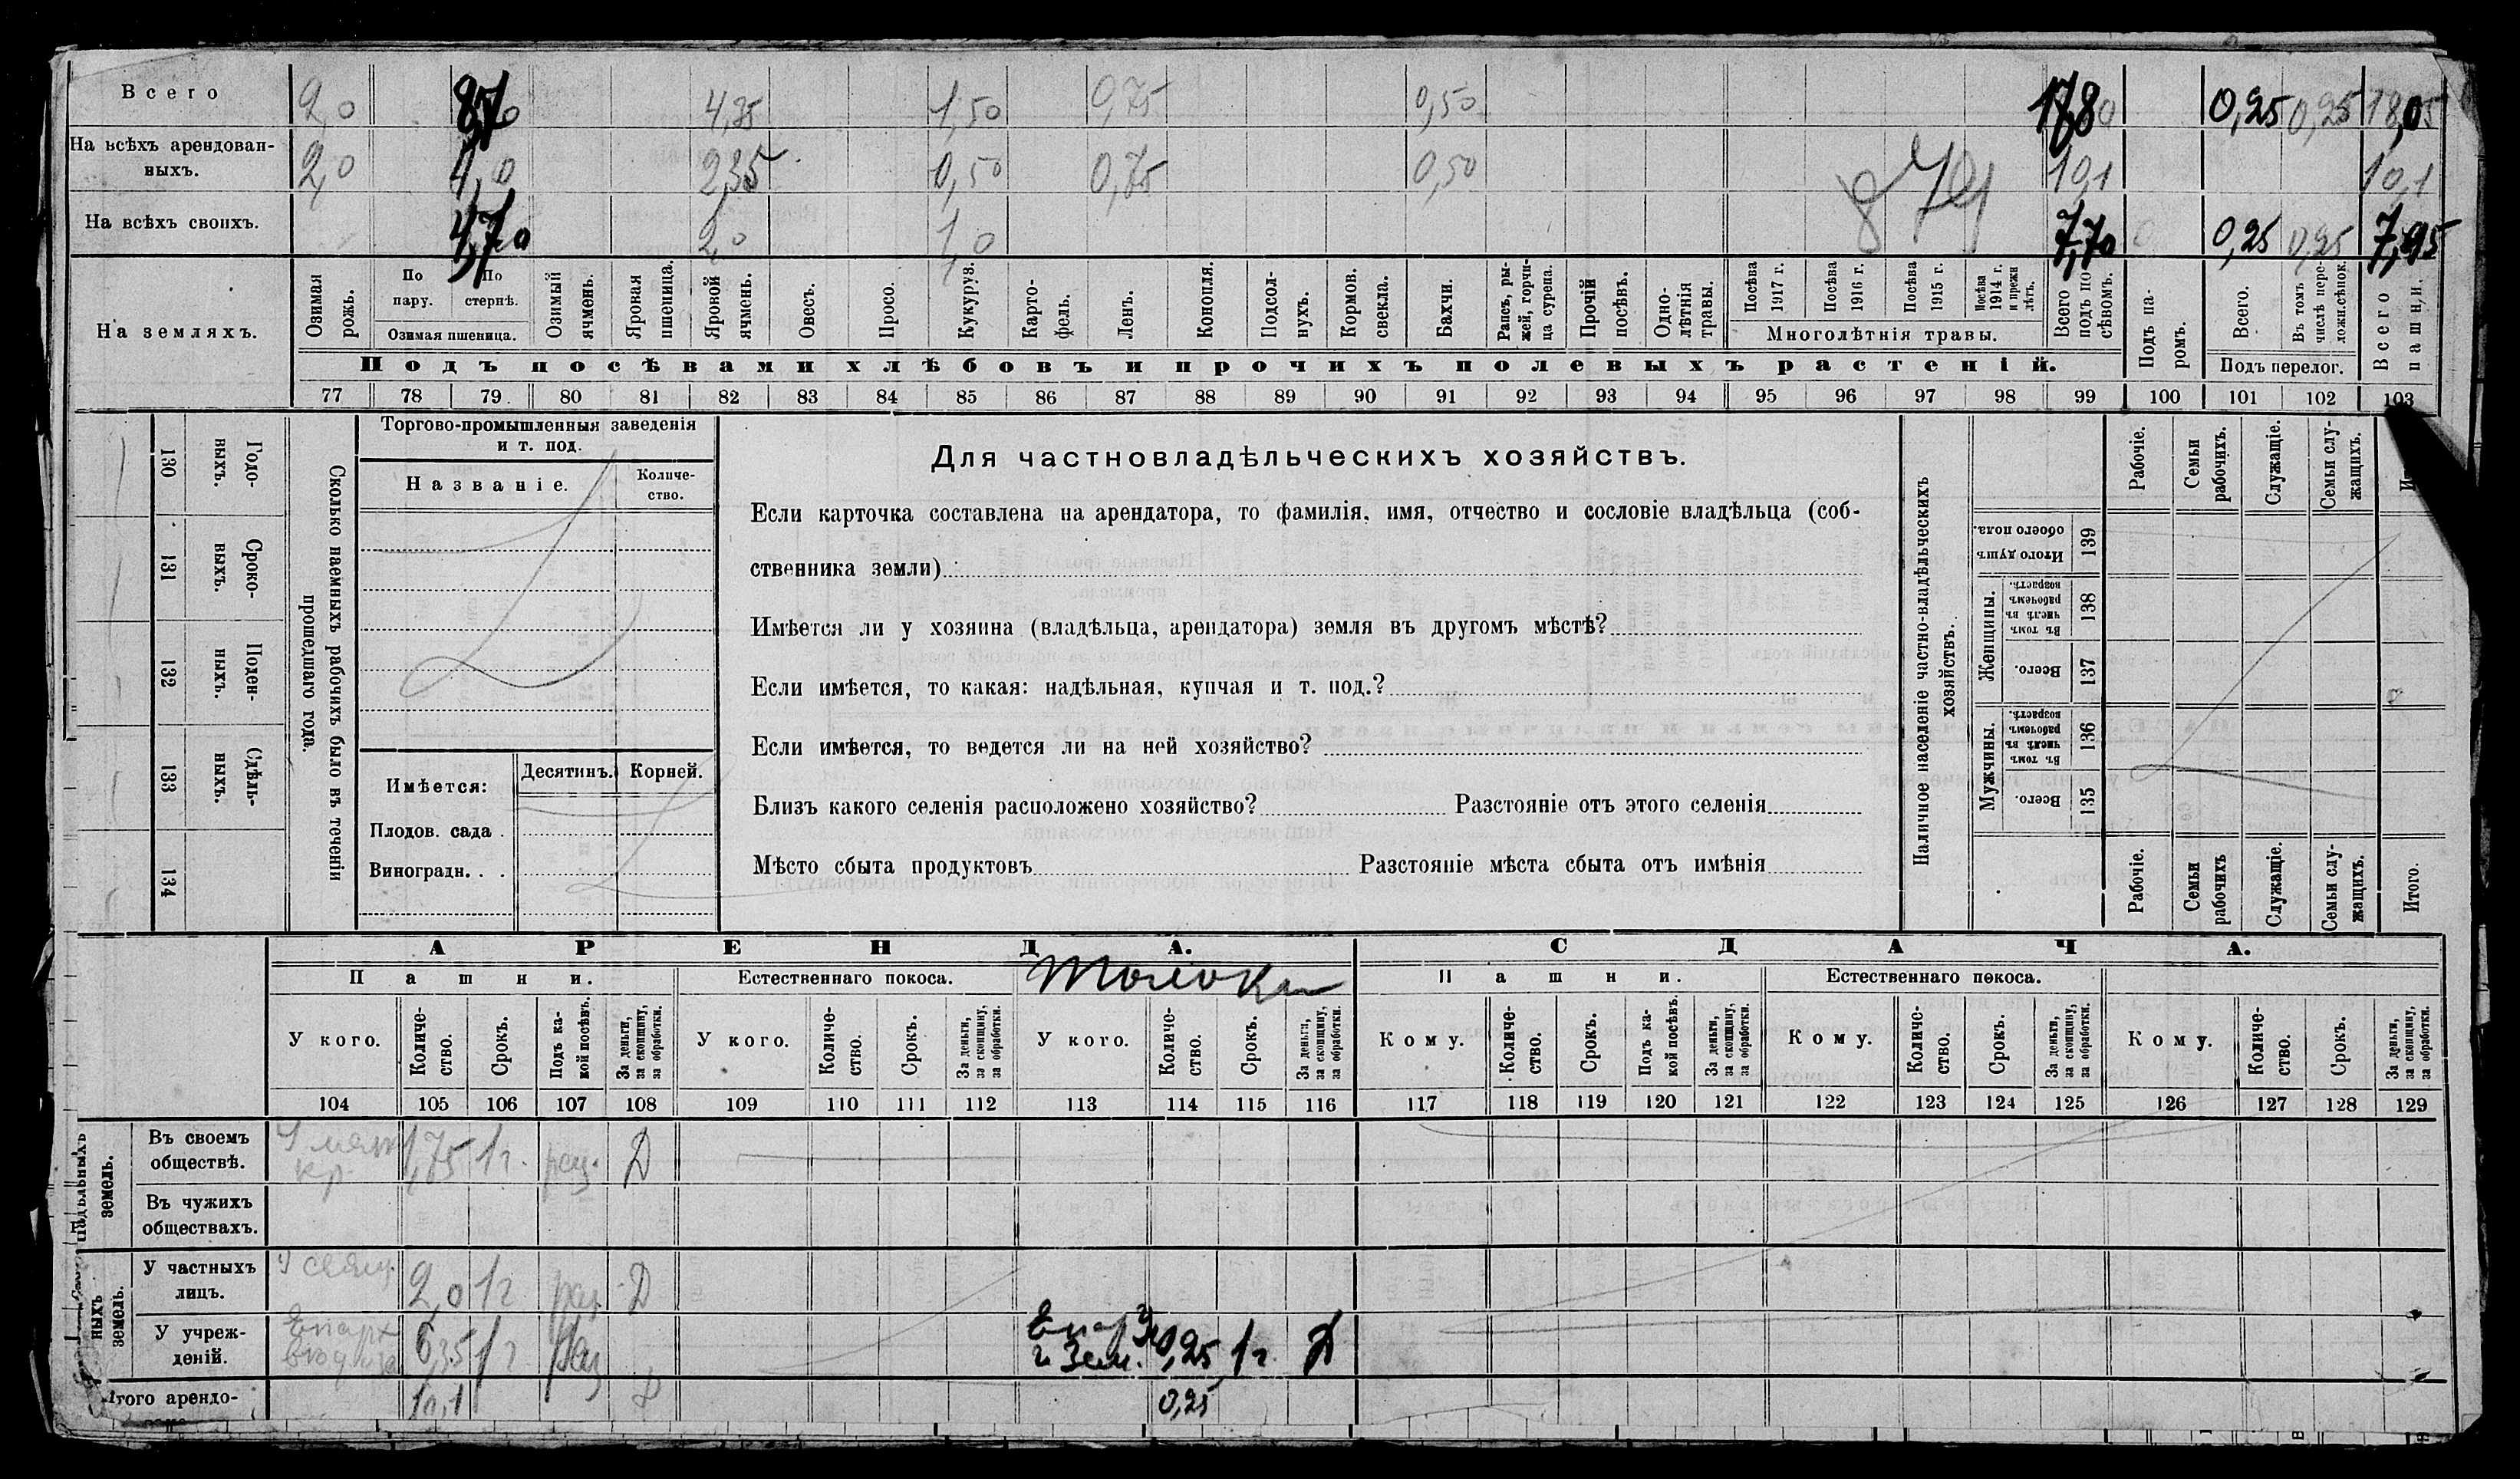 Всего 2,0 8,70 4,35 1,50 0,75 0,50 17,80 0,25 0,25 18,05
На всѣхъ арендован-
ныхъ. 2,0 4,0 2,35 0,50 0,75 0,50 10,1 10,1
На всѣхъ своихъ. 4,70 2,0 1,0 7,70 0,25 0,25 7,95
874
На земляхъ.
Озимая рожь.
По пару.
По стернѣ.
Озимая пшеница.
Озимый ячмень.
Яровая пшеница.
Яровой ячмень.
Овесъ.
Просо.
Кукуруз.
Карто-
фель.
Ленъ.
Конопля.
Подсол-
нухъ.
Кормов.
свекла.
Бахчи.
Рапсъ, ры-
жей, горчи-
ца сурепа.
Прочій
посѣвъ.
Одно-
лѣтнія
травы.
Посѣва
1917 г.
Посѣва
1916 г.
Посѣва
1915 г.
Посѣва
1914 г.
и прежн
лѣтъ.
Многолѣтнія травы.
Всего
подъ по
сѣвомъ.
Подъ па-
ромъ.
Всего.
Въ томъ
числѣ пере-
ложн.сѣнок.
Подъ перелог.
Всего
пашни.
Подъ посѣвами хлѣбовъ и прочихъ полевыхъ растеній.
77 78 79 80 81 82 83 84 85 86 87 88 89 90 91 92 93 94 95 96 97 98 99 100 101 102 103
130 Годо-
ныхъ.
131 Сроко-
ныхъ.
132 Поден-
ныхъ.
133 Сдѣль-
ныхъ.
134
Сколько наемныхъ рабочихъ было въ теченіи
прошедшаго года.
Торгово-промышленныя заведенія
и т. под.
Названіе.
Количе-
ство.
Имѣется:
Десятинъ.
Корней.
Плодов. сада .
Виноградн. . .
Для частновладѣльческихъ хозяйствъ.
Если карточка составлена на арендатора, то фамилія, имя, отчество и сословіе владѣльца (соб-
ственника земли)
Имѣется ли у хозяина (владѣльца, арендатора) земля въ другомъ мѣстѣ?
Если имѣется, то какая: надѣльная, купчая и т. под.?
Если имѣется, то ведется ли на ней хозяйство?
Близъ какого селенія расположено хозяйство? Разстояніе отъ этого селенія
Мѣсто сбыта продуктовъ Разстояніе мѣста сбыта отъ имѣнія
Наличное населеніе частно-владѣльческихъ
хозяйствъ.
Рабочіе.
Семьи
рабочихъ.
Служащіе.
Семьи слу-
жащихъ.
Итого душъ
обоего пола. 139
Женщины.
Въ томъ
числѣ въ
рабочемъ
возрастѣ. 138
Всего. 137
Мужчины.
Въ томъ
числѣ въ
рабочемъ
возрастѣ. 136
Всего. 135
Рабочіе.
Семьи
рабочихъ
Служащіе.
Семьи слу-
жащихъ.
Итого.
АРЕНДА.
СДАЧА.
Пашни.
Естественнаго покоса.
Толока
Пашни.
Естественнаго покоса.
У кого.
Количе-
ство.
Срокъ.
Подъ ка-
кой посѣвъ.
За деньги,
за скопщину,
за обработки.
У кого.
Количе-
ство.
Срокъ.
За деньги,
за скопщину,
за обработки.
У кого.
Количе-
ство.
Срокъ.
За деньги,
за скопщину,
за обработки.
Кому.
Количе-
ство.
Срокъ.
Подъ ка-
кой посѣвъ.
За деньги,
за скопщину,
за обработки.
Кому.
Количе-
ство.
Срокъ.
За деньги,
за скопщину,
за обработки.
Кому.
Количе-
ство.
Срокъ.
За деньги,
за скопщину,
за обработки.
104 105 106 107 108 109 110 111 112 113 114 115 116 117 118 119 120 121 122 123 124 125 126 127 128 129
Надѣльныхъ
земель.
Въ своемъ
обществѣ. кр. 1,75 1 г. Д
Въ чужихъ
обществахъ.
ныхъ
земель.
У частныхъ
лицъ. 2,0 1 г Д
У учреж-
деній. 6,35 1 г 0,25 1 г. Д
Итого арендо- 10,1 0,25